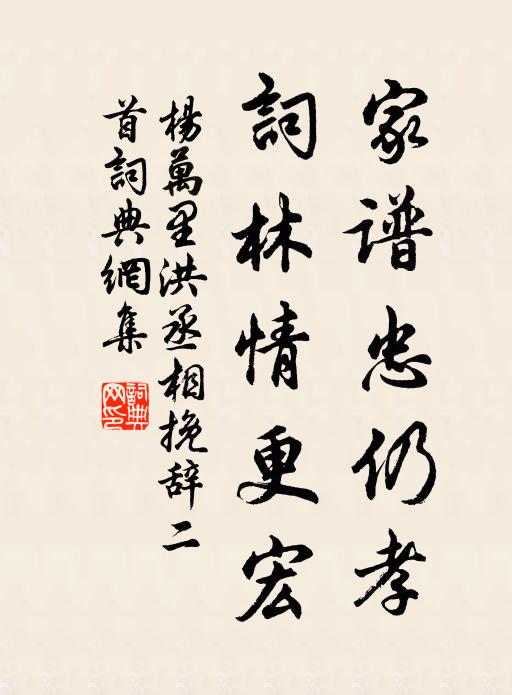 家谱忠仍孝
詞林情更宏
楊萬里洪丞相挽辞二
首詞典網集
詞典网印